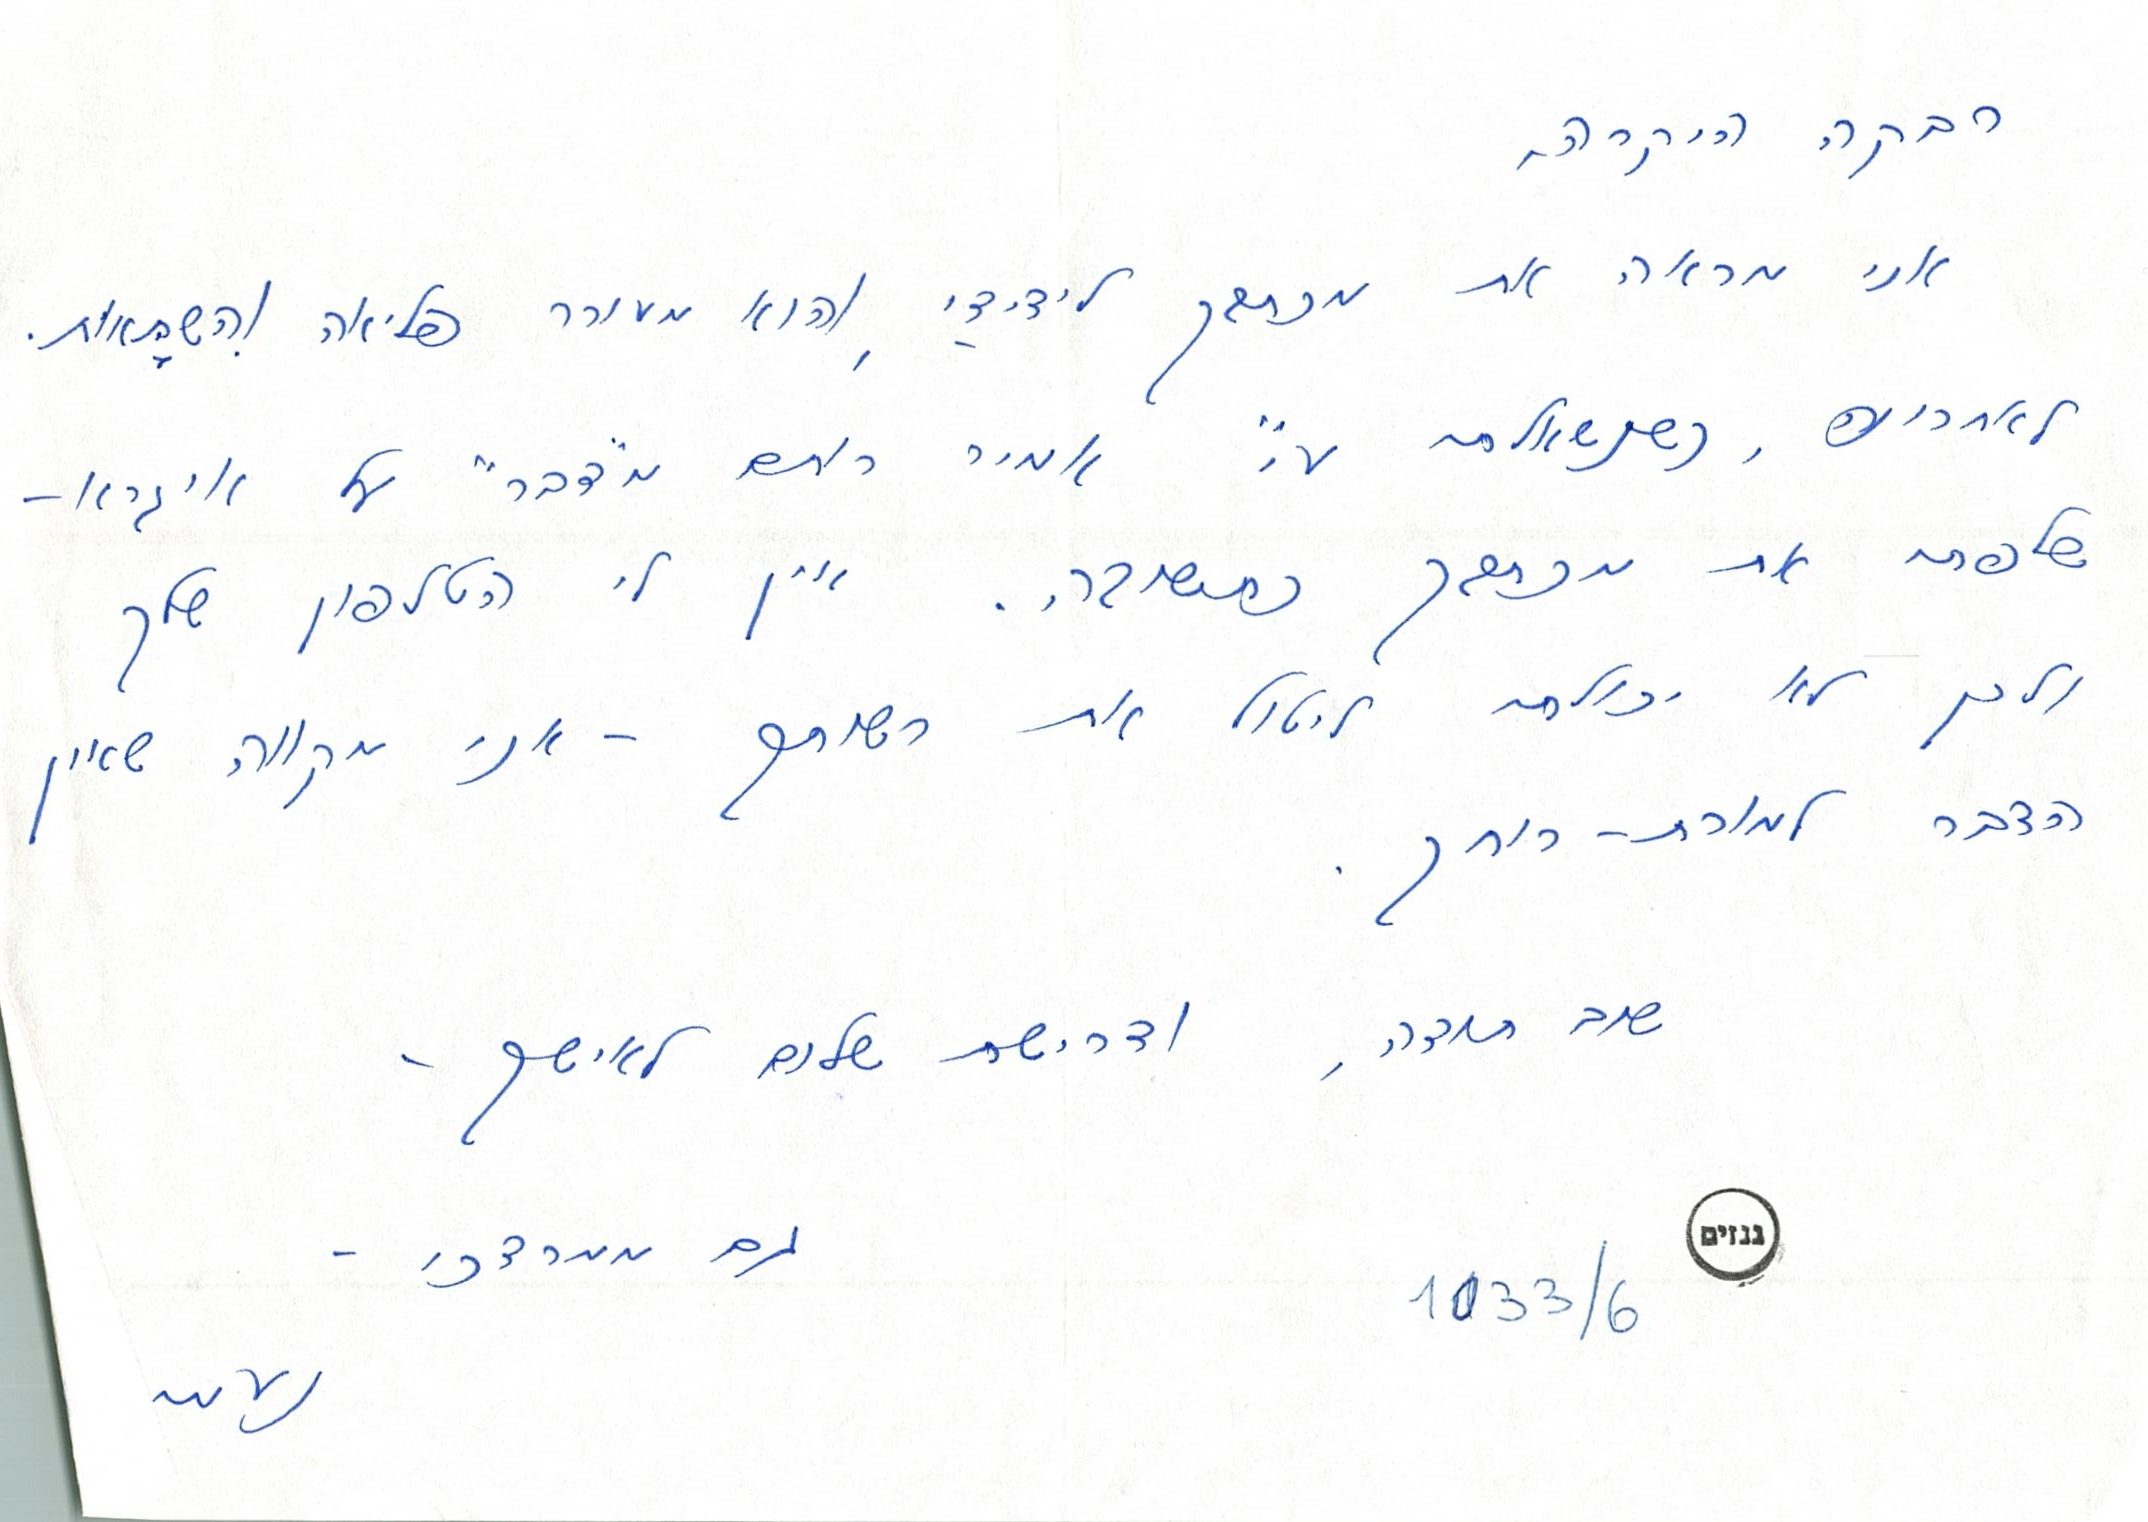 רבקה היקרה,
אני מראה את מכתבך לידידַי והוא מעורר פליאה והשתאות.
לאחרונה, כשנשאלתי ע"י אמיר רותם מ"דבר" על איגרא-
שלפתי את מכתבך כתשובה. אין לי הטלפון שלך
ולכן לא יכולתי ליטול את רשותך - אני מקווה שאין
הדבר למורת-רוחך.
שוב תודה, ודרישת שלום לאישך -
גם ממרדכי -
1033/6
גנזים